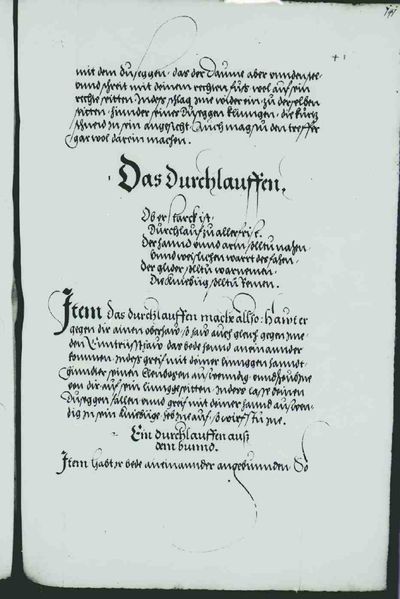 mit dem duseggen. das der Daume aber unnden see.
vnnd schreit mit deinem rechten fuß wol auf sein
rechte seitten Indeß schlag Ime wider ein zu derselben
seitten. hinnder seiner duseggen klingen. die kurtz
schneid in sein angesicht Auch mag du den treffer
gar wol darein machen.
Das Durchlauffen.
Ob er starck ist.
Durchlauf zu aller frist.
Der hannd vnnd arm solltu nahen
vnnd weislichen wart des fahen.
Der glider solltu warnemen.
Die kniebüg solltu Remen.
Item das durchlauffen mach allso: Hawt er
gegen dir ainen oberhaw so haw auch gleich gegen Ime
den das bede hannd aneinannder
kommen. Indeß greif mit deiner linnggen hanndt
hinnder seinen elenbogen auswendig vnnd
von dir auf sein linngge seitten Indeß lasse deinen
duseggen fallen vnnd greif mit deiner hannd auswen-
dig in sein kniebüge heb Ine auf so wirfstu Ine.
Ein durchlauffen auß
dem bunnd.
Item habt Ir bede aneinannder angebunnden So